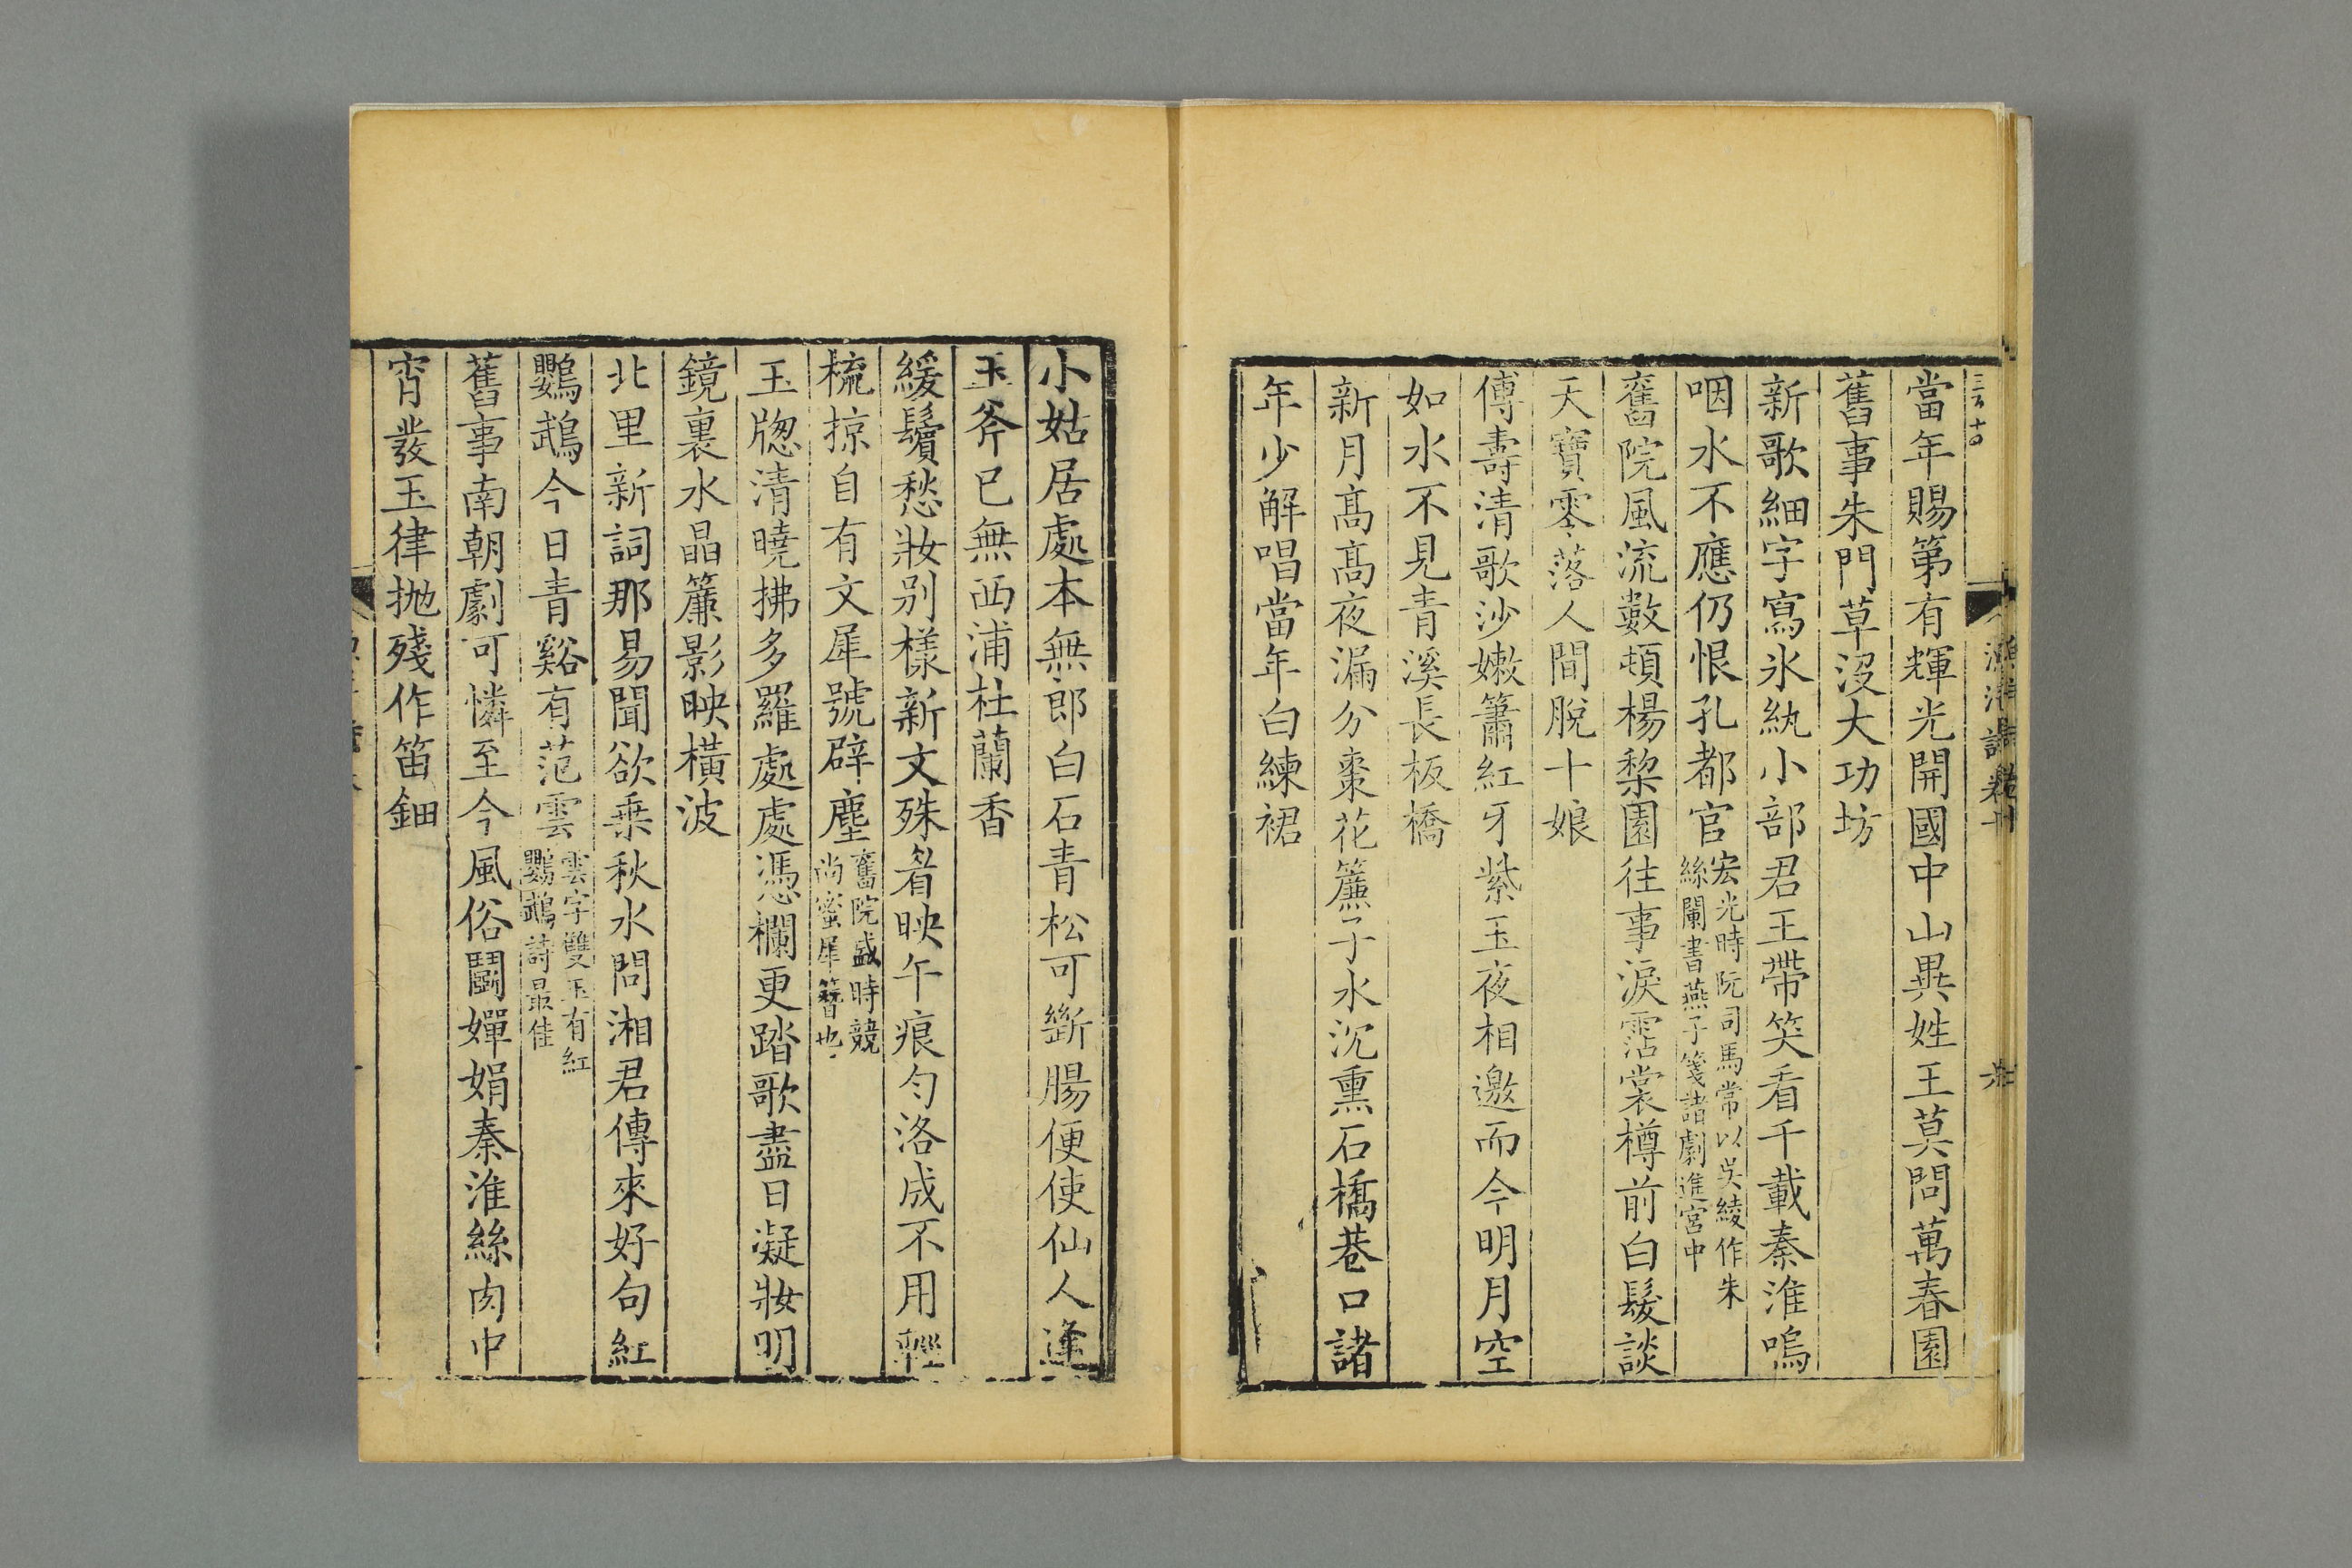 當年賜第有輝光開國中山異姓王莫問萬春園
舊事朱門草沒大功坊
新歌細字寫氷紈小部君王帶笑看千載秦淮嗚
咽水不應仍恨孔都官宏光時阮司馬常以吳綾作朱
絲闌書燕子箋諸劇進宮中
舊院風流數頓楊棃園往事淚霑裳樽前白髮談
天寶零落人間脫十娘
傅壽清歌沙嫩簫紅牙紫玉夜相邀而今明月空
如水不見青溪長板橋
新月髙髙夜漏分棗花簾子水沉熏石橋巷口諸
年少解唱當年白練裙
小姑居處本無郎白石青松可斷腸便使仙人逢
玉斧已無西浦杜蘭香
緩鬢愁妝别樣新文殊眉映午痕勻洛成不用輕
梳掠自有文犀號辟塵舊院盛時競
尚蜜犀簪也
玉牕清曉拂多羅處處凴欄更踏歌盡日凝妝明
鏡裏水晶簾影映橫波
北里新詞那易聞欲乗秋水問湘君傳來好句紅
鸚鵡今日青谿有范雲雲字雙玉有紅
鸚鵡詩最佳
舊事南朝劇可憐至今風俗鬬嬋娟秦淮絲肉中
宵發玉律抛殘作笛鈿